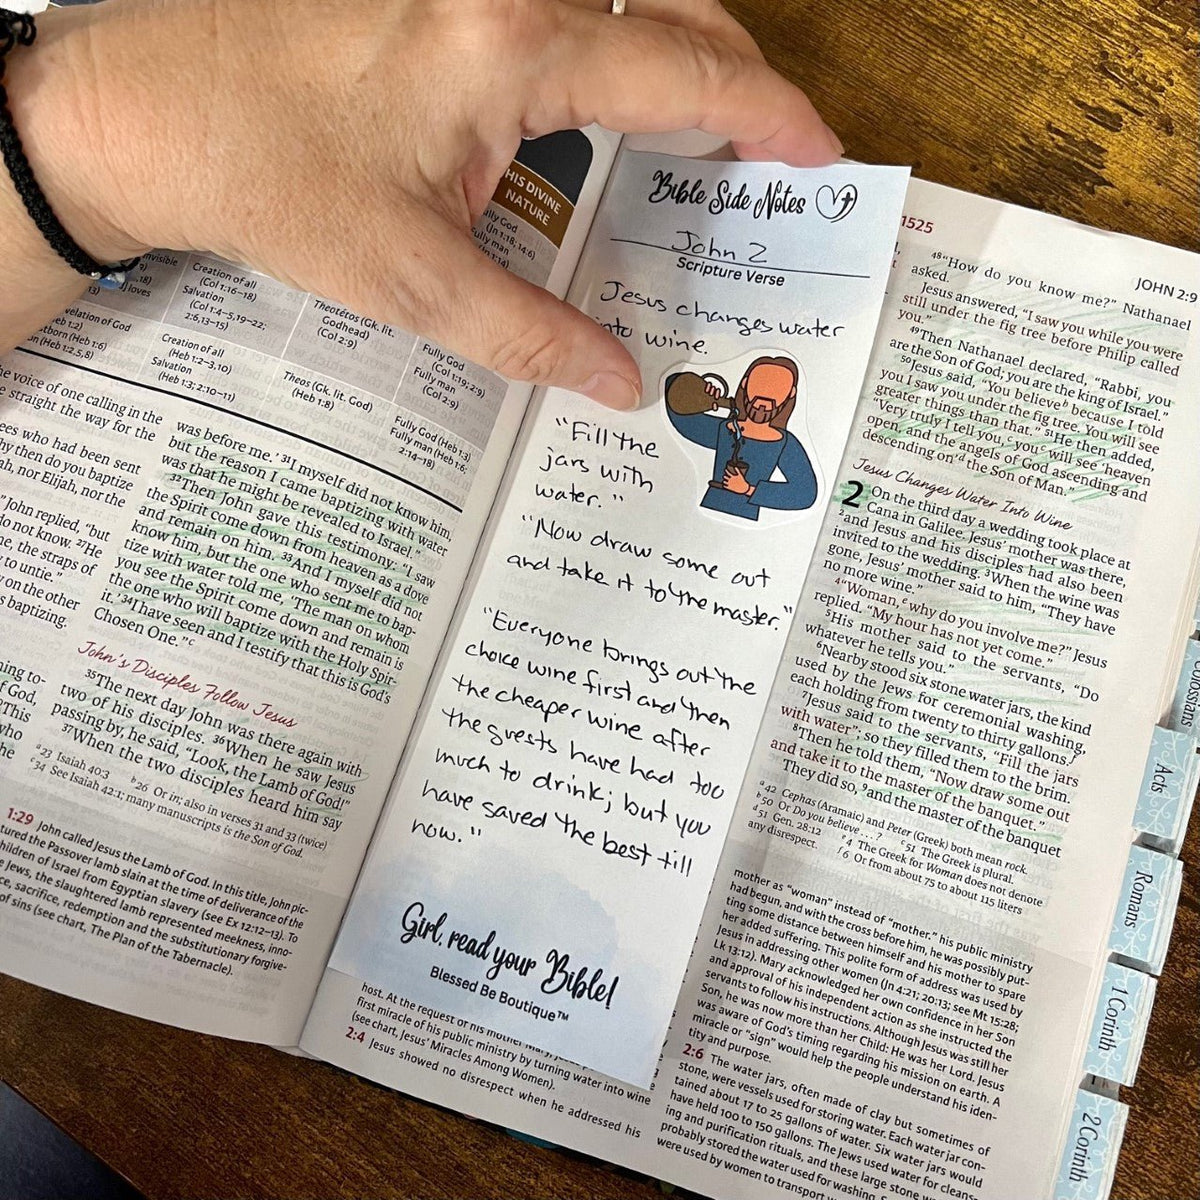 HIS DIVINE
NATURE
Creation of all
(Col 1:16–18)
Salvation
(Col 1:4–5,19–22;
2:6,13–15)
Creation of all
(Heb 1:2–3,10)
Salvation
(Heb 1:3; 2:10–11)
Theotétos (Gk. lit.
Godhead)
(Col 2:9)
Theos (Gk. lit. God)
(Heb 1:8)
ully God
(Jn 1:18; 14:6)
Fully man
(Jn 1:14)
Fully God
(Col 1:19; 2:9)
Fully man
(Col 2:9)
Fully God (Heb 1:3)
Fully man (Heb 1:6;
2:14–18)
he voice of one calling in the
e straight the way for the
ees who had been sent
hy then do you baptize
ah, nor Elijah, nor the
" John replied, "but
do not know. 27He
he, the straps of
y to untie."
y on the other
s baptizing.
was before me.' 31I myself did not know him,
but the reason I came baptizing with water
was that he might be revealed to Israel."
32Then John gave this testimony: "I saw
the Spirit come down from heaven as a dove
and remain on him. 33And I myself did not
know him, but the one who sent me to bap-
tize with water told me, 'The man on whom
you see the Spirit come down and remain is
the one who will baptize with the Holy Spir-
it.' 34I have seen and I testify that this is God's
Chosen One."c
John's Disciples Follow Jesus
35The next day John was there again with
two of his disciples. 36When he saw Jesus
passing by, he said, "Look, the Lamb of God!"
37When the two disciples heard him say
a23 Isaiah 40:3 b26 Or in; also in verses 31 and 33 (twice)
c34 See Isaiah 42:1; many manuscripts is the Son of God.
1:29 John called Jesus the Lamb of God. In this title, John pic-
tured the Passover lamb slain at the time of deliverance of the
hildren of Israel from Egyptian slavery (see Ex 12:12–13). To
e Jews, the slaughtered lamb represented meekness, inno-
ce, sacrifice, redemption and the substitutionary forgive-
of sins (see chart, The Plan of the Tabernacle).
Bible Side Notes
John 2
Scripture Verse
Jesus changes water
into wine.
"Fill the
jars with
water."
"Now draw some out
and take it to the master."
"Everyone brings out the
choice wine first and then
the cheaper wine after
the guests have had too
much to drink; but you
have saved the best till
now."
Girl, read your Bible!
Blessed Be Boutique™
host. At the request of his mother Mary,
first miracle of his public ministry by turning water into wine
(see chart, Jesus' Miracles Among Women).
2:4 Jesus showed no disrespect when he addressed his
1525
JOHN 2:9
48"How do you know me?" Nathanael
asked.
Jesus answered, "I saw you while you were
still under the fig tree before Philip called
you."
49Then Nathanael declared, "Rabbi, you
are the Son of God; you are the king of Israel."
50Jesus said, "You believe b because I told
you I saw you under the fig tree. You will see
greater things than that." 51He then added,
"Very truly I tell you, c you c will see 'heaven
open, and the angels of God ascending and
descending on' d the Son of Man."
Jesus Changes Water Into Wine
2 On the third day a wedding took place at
Cana in Galilee. Jesus' mother was there,
2and Jesus and his disciples had also been
invited to the wedding. 3When the wine was
gone, Jesus' mother said to him, "They have
no more wine."
4"Woman, e why do you involve me?" Jesus
replied. "My hour has not yet come."
5His mother said to the servants, "Do
whatever he tells you."
6Nearby stood six stone water jars, the kind
used by the Jews for ceremonial washing,
each holding from twenty to thirty gallons. f
7Jesus said to the servants, "Fill the jars
with water"; so they filled them to the brim.
8Then he told them, "Now draw some out
and take it to the master of the banquet."
They did so, 9and the master of the banquet
a42 Cephas (Aramaic) and Peter (Greek) both mean rock.
b50 Or Do you believe . . . ? c51 The Greek is plural.
d51 Gen. 28:12 e4 The Greek for Woman does not denote
any disrespect. f6 Or from about 75 to about 115 liters
mother as "woman" instead of "mother," his public ministry
had begun, and with the cross before him, he was possibly put-
ting some distance between himself and his mother to spare
her added suffering. This polite form of address was used by
Jesus in addressing other women (Jn 4:21; 20:13; see Mt 15:28;
Lk 13:12). Mary acknowledged her own confidence in her Son
and approval of his independent action as she instructed the
servants to follow his instructions. Although Jesus was still her
Son, he was now more than her Child: He was her Lord. Jesus
was aware of God's timing regarding his mission on earth. A
miracle or "sign" would help the people understand his iden-
tity and purpose.
2:6 The water jars, often made of clay but sometimes of
stone, were vessels used for storing water. Each water jar con-
tained about 17 to 25 gallons of water. Six water jars would
have held 100 to 150 gallons. The Jews used water for cleans-
ing and purification rituals, and these large stone
probably stored the water used for washing.
were used by women to transport
Colossians
Acts
Romans
1 Corinth
2 Corinth